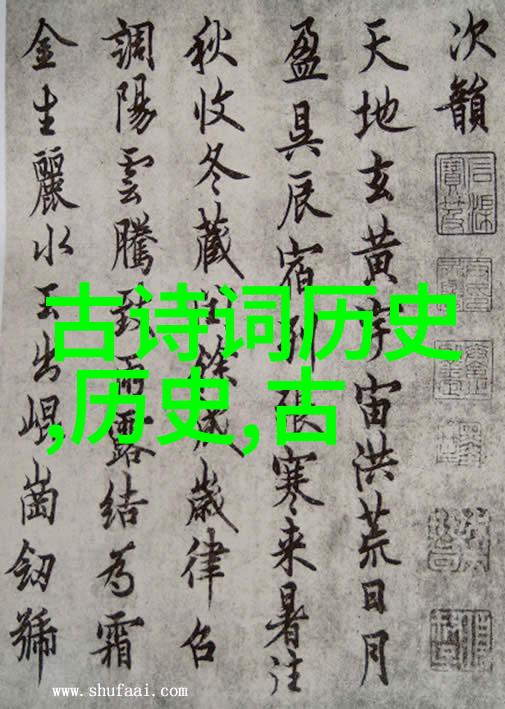 次韻
天地玄黃宇宙洪荒日月
盈昃辰宿列張寒来暑往
秋收冬藏閏餘成歲律召
調陽雲騰致雨露結為霜
金生麗水玉出崐崗劒號
古诗词历史
,历史,古
www.shufaai.com